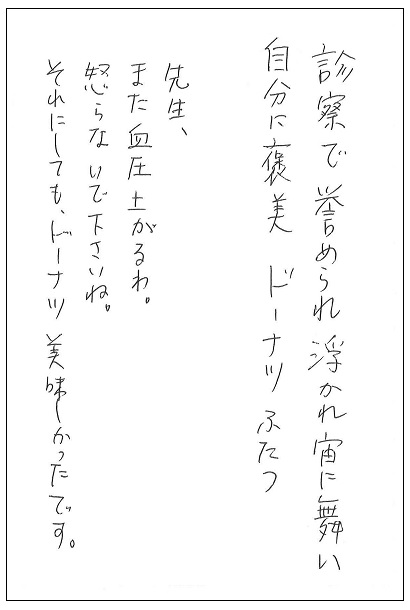 診察で誉められ浮かれ宙に舞い
自分に褒美 ドーナツふたつ
先生、
また血圧上がるわ。
怒らないで下さいね。
それにしても、ドーナツ美味しかったです。